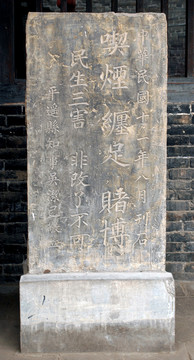 中華民國十二年八月刊石
喫煙纏足賭博
民生三害非改了不可
平遙縣知事吳